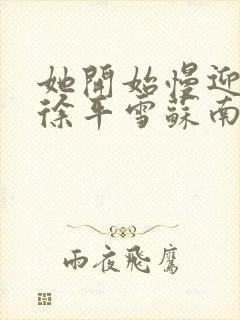 她開始慢迎
徐平雪蘇南
雨夜飛鷹